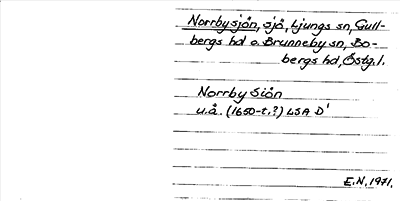 Norrbysjön, sjö, Ljungs sn, Gull-
bergs hd o. Brunneby sn, Bo-
bergs hd, Östg. l.
Norrby Siön
u.å. (1650-t.?) LSA D¹
E.N. 1971.